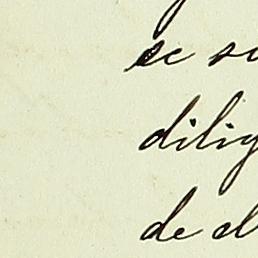 se so
dilig
de el